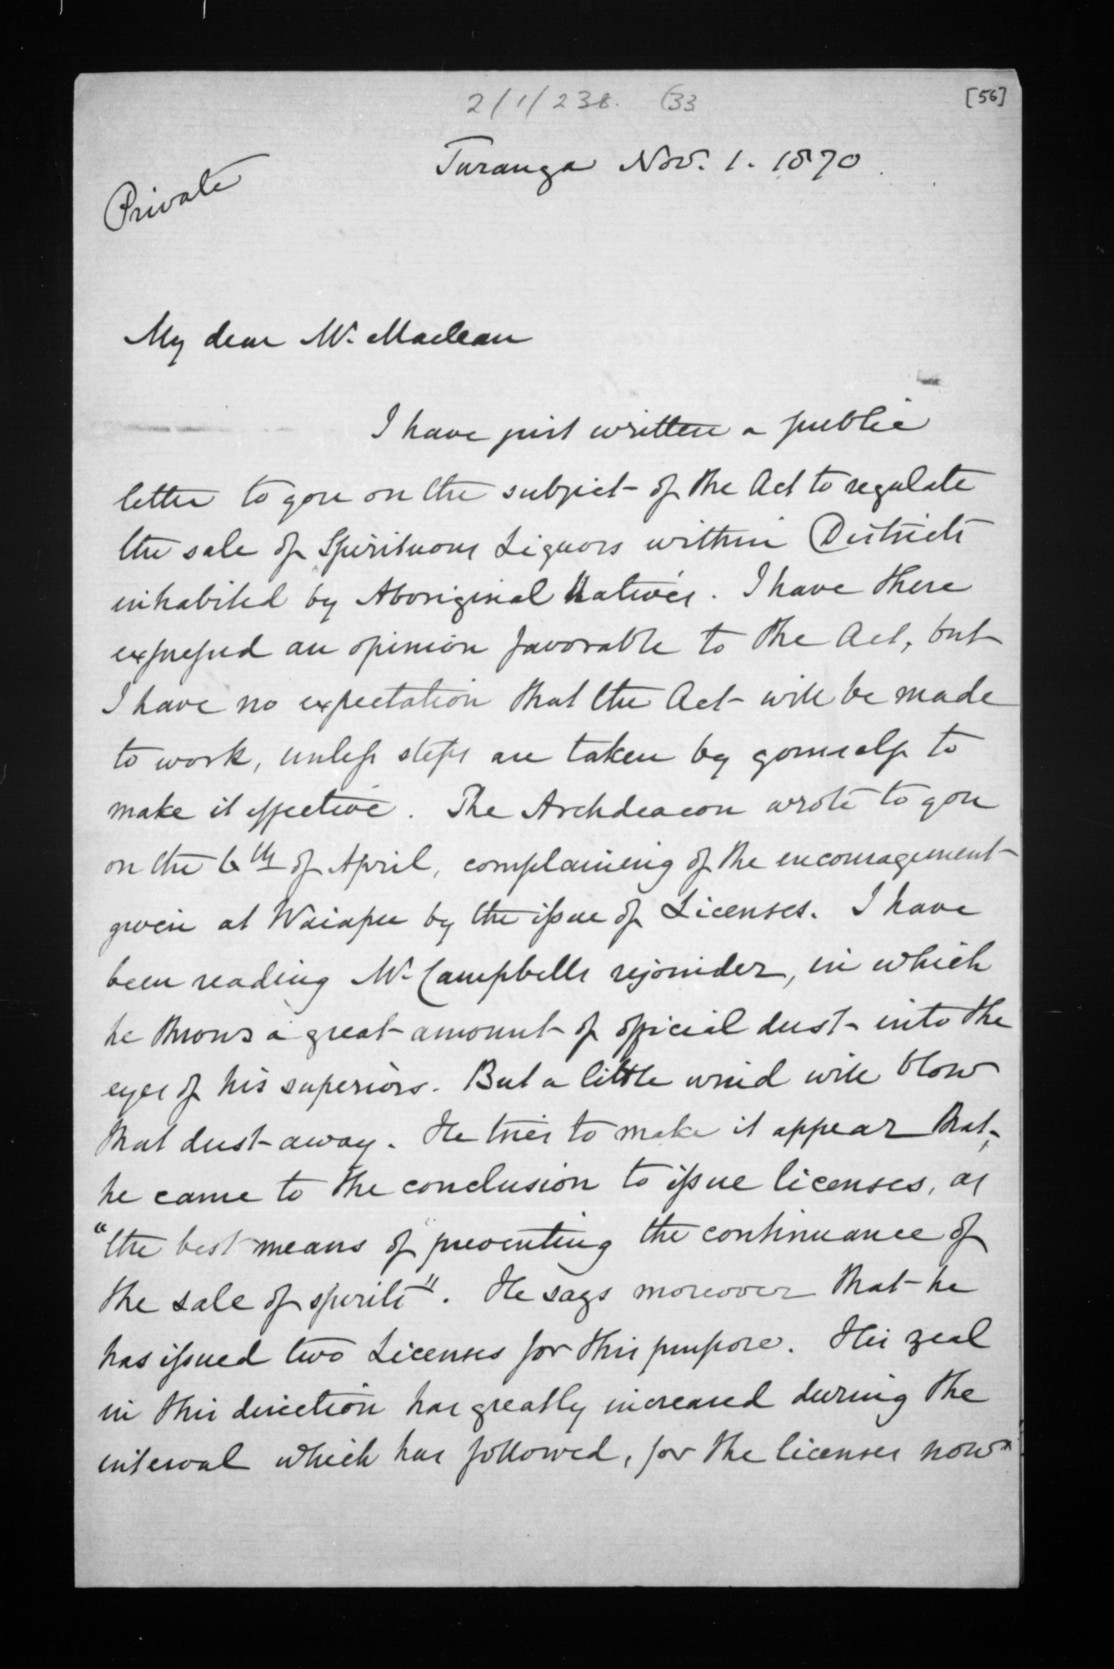 2/1/238. 33
[56]
Turanga Nov. 1. 1870.
Private
My dear Mr. Maclean
I have just written a public
letter to you on the subject of the Act to regulate
the sale of Spirituous Liquors within Districts
inhabited by Aboriginal Natives. I have there
expressed an opinion favorable to the Act, but
I have no expectation that the Act will be made
to work, unless steps are taken by yourself to
make it effective. The Archdeacon wrote to you
on the 6th of April, complaining of the encouragement
given at Waiapu by the issue of Licenses. I have
been reading Mr Campbells rejoinder, in which
he throws a great amount of official dust into the
eyes of his superiors. But a little wind will blow
that dust away. He tries to make it appear that,
he came to the conclusion to issue licenses, as
"the best means of preventing the continuance of
the sale of spirits". He says moreover that he
has issued two Licenses for this purpose. His zeal
in this direction has greatly increased during the
interval which has followed, for the licenses now